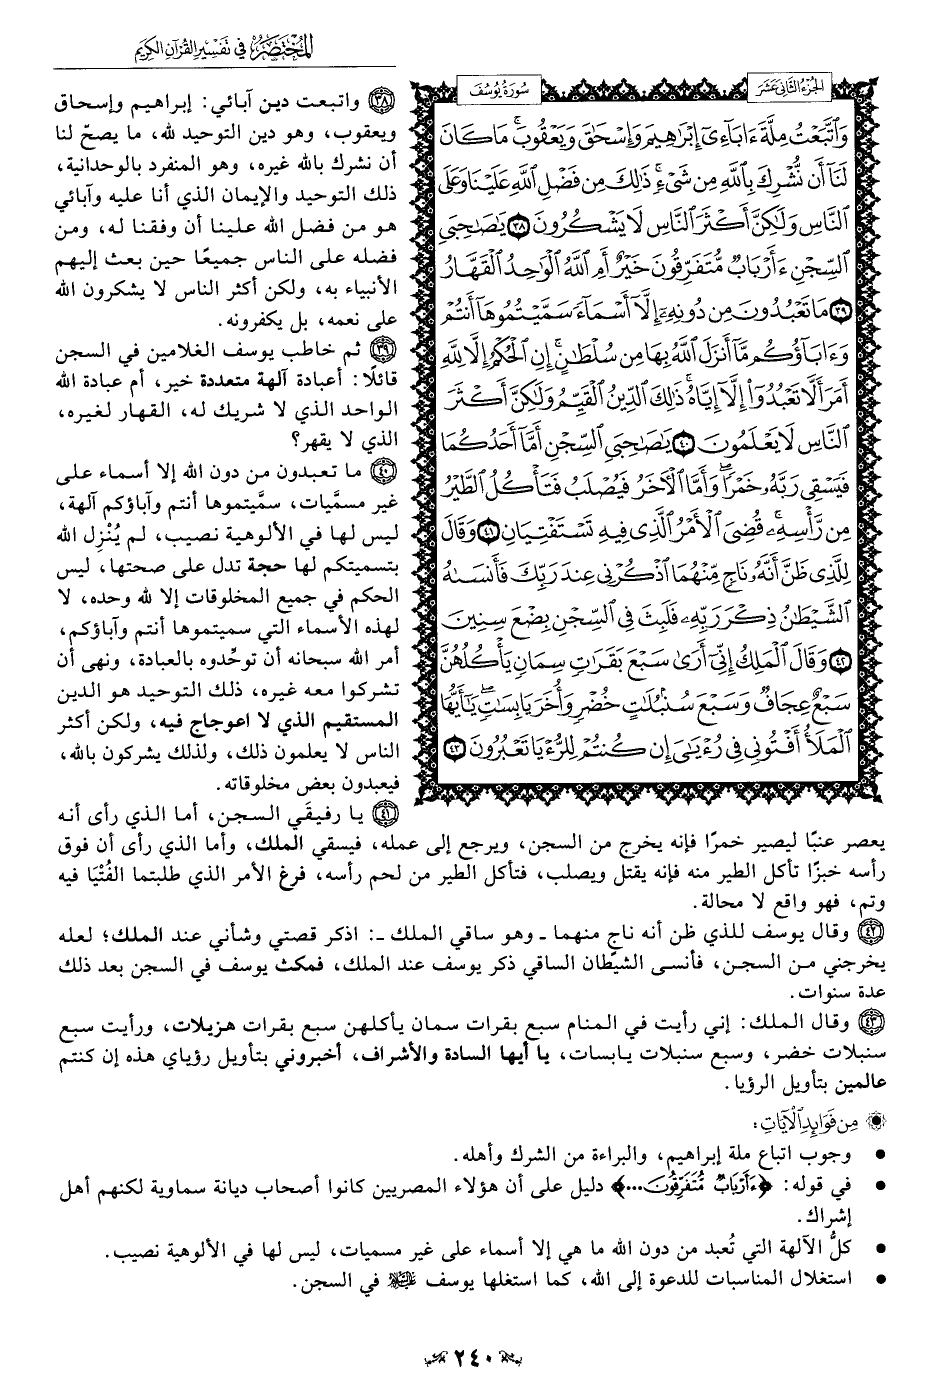 المختصر في تفسير القرآن الكريم
الجزء الثاني عشر
سورة يوسف
وَٱتَّبَعۡتُ مِلَّةَ ءَابَآءِيٓ إِبۡرَٰهِيمَ وَإِسۡحَٰقَ وَيَعۡقُوبَۚ مَا كَانَ
لَنَآ أَن نُّشۡرِكَ بِٱللَّهِ مِن شَيۡءٖۚ ذَٰلِكَ مِن فَضۡلِ ٱللَّهِ عَلَيۡنَا وَعَلَى
ٱلنَّاسِ وَلَٰكِنَّ أَكۡثَرَ ٱلنَّاسِ لَا يَشۡكُرُونَ ٣٨ يَٰصَٰحِبَيِ
ٱلسِّجۡنِ ءَأَرۡبَابٞ مُّتَفَرِّقُونَ خَيۡرٌ أَمِ ٱللَّهُ ٱلۡوَٰحِدُ ٱلۡقَهَّارُ
٣٩ مَا تَعۡبُدُونَ مِن دُونِهِۦٓ إِلَّآ أَسۡمَآءٗ سَمَّيۡتُمُوهَآ أَنتُمۡ
وَءَابَآؤُكُم مَّآ أَنزَلَ ٱللَّهُ بِهَا مِن سُلۡطَٰنٍۚ إِنِ ٱلۡحُكۡمُ إِلَّا لِلَّهِ
أَمَرَ أَلَّا تَعۡبُدُوٓاْ إِلَّآ إِيَّاهُۚ ذَٰلِكَ ٱلدِّينُ ٱلۡقَيِّمُ وَلَٰكِنَّ أَكۡثَرَ
ٱلنَّاسِ لَا يَعۡلَمُونَ ٤٠ يَٰصَٰحِبَيِ ٱلسِّجۡنِ أَمَّآ أَحَدُكُمَا
فَيَسۡقِي رَبَّهُۥ خَمۡرٗاۖ وَأَمَّا ٱلۡأٓخَرُ فَيُصۡلَبُ فَتَأۡكُلُ ٱلطَّيۡرُ
مِن رَّأۡسِهِۦۚ قُضِيَ ٱلۡأَمۡرُ ٱلَّذِي فِيهِ تَسۡتَفۡتِيَانِ ٤١ وَقَالَ
لِلَّذِي ظَنَّ أَنَّهُۥ نَاجٖ مِّنۡهُمَا ٱذۡكُرۡنِي عِندَ رَبِّكَ فَأَنسَىٰهُ
ٱلشَّيۡطَٰنُ ذِكۡرَ رَبِّهِۦ فَلَبِثَ فِي ٱلسِّجۡنِ بِضۡعَ سِنِينَ
٤٢ وَقَالَ ٱلۡمَلِكُ إِنِّيٓ أَرَىٰ سَبۡعَ بَقَرَٰتٖ سِمَانٖ يَأۡكُلُهُنَّ
سَبۡعٌ عِجَافٞ وَسَبۡعَ سُنۢبُلَٰتٍ خُضۡرٖ وَأُخَرَ يَابِسَٰتٖۖ يَٰٓأَيُّهَا
ٱلۡمَلَأُ أَفۡتُونِي فِي رُءۡيَٰيَ إِن كُنتُمۡ لِلرُّءۡيَا تَعۡبُرُونَ ٤٣
٣٨ واتبعت دين آبائي: إبراهيم وإسحاق
ويعقوب، وهو دين التوحيد لله، ما يصحّ لنا
أن نشرك بالله غيره، وهو المنفرد بالوحدانية،
ذلك التوحيد والإيمان الذي أنا عليه وآبائي
هو من فضل الله علينا أن وفقنا له، ومن
فضله على الناس جميعًا حين بعث إليهم
الأنبياء به، ولكن أكثر الناس لا يشكرون الله
على نعمه، بل يكفرونه.
٣٩ ثم خاطب يوسف الغلامين في السجن
قائلًا: أعبادة آلهة متعددة خير، أم عبادة الله
الواحد الذي لا شريك له، القهار لغيره،
الذي لا يقهر؟
٤٠ ما تعبدون من دون الله إلا أسماء على
غير مسمَّيات، سمَّيتموها أنتم وآباؤكم آلهة،
ليس لها في الألوهية نصيب، لم يُنْزِل الله
بتسميتكم لها حجة تدل على صحتها، ليس
الحكم في جميع المخلوقات إلا لله وحده، لا
لهذه الأسماء التي سميتموها أنتم وآباؤكم،
أمر الله سبحانه أن توحِّدوه بالعبادة، ونهى أن
تشركوا معه غيره، ذلك التوحيد هو الدين
المستقيم الذي لا اعوجاج فيه، ولكن أكثر
الناس لا يعلمون ذلك، ولذلك يشركون بالله،
فيعبدون بعض مخلوقاته.
٤١ يا رفيقَي السجن، أما الذي رأى أنه
يعصر عنبًا ليصير خمرًا فإنه يخرج من السجن، ويرجع إلى عمله، فيسقي الملك، وأما الذي رأى أن فوق
رأسه خبزًا تأكل الطير منه فإنه يقتل ويصلب، فتأكل الطير من لحم رأسه، فرغ الأمر الذي طلبتما الفُتْيَا فيه
وتم، فهو واقع لا محالة.
٤٢ وقال يوسف للذي ظن أنه ناجٍ منهما ـ وهو ساقي الملك ـ: اذكر قصتي وشأني عند الملك؛ لعله
يخرجني من السجن، فأنسى الشيطان الساقي ذكر يوسف عند الملك، فمكث يوسف في السجن بعد ذلك
عدة سنوات.
٤٣ وقال الملك: إني رأيت في المنام سبع بقرات سمان يأكلهن سبع بقرات هزيلات، ورأيت سبع
سنبلات خضر، وسبع سنبلات يابسات، يا أيها السادة والأشراف، أخبروني بتأويل رؤياي هذه إن كنتم
عالمين بتأويل الرؤيا.
من فوائد الآيات:
• وجوب اتباع ملة إبراهيم، والبراءة من الشرك وأهله.
• في قوله: ﴿ءَأَرۡبَابٞ مُّتَفَرِّقُونَ...﴾ دليل على أن هؤلاء المصريين كانوا أصحاب ديانة سماوية لكنهم أهل
إشراك.
• كلُّ الآلهة التي تُعبد من دون الله ما هي إلا أسماء على غير مسميات، ليس لها في الألوهية نصيب.
• استغلال المناسبات للدعوة إلى الله، كما استغلها يوسف عليه السلام في السجن.
٢٤٠